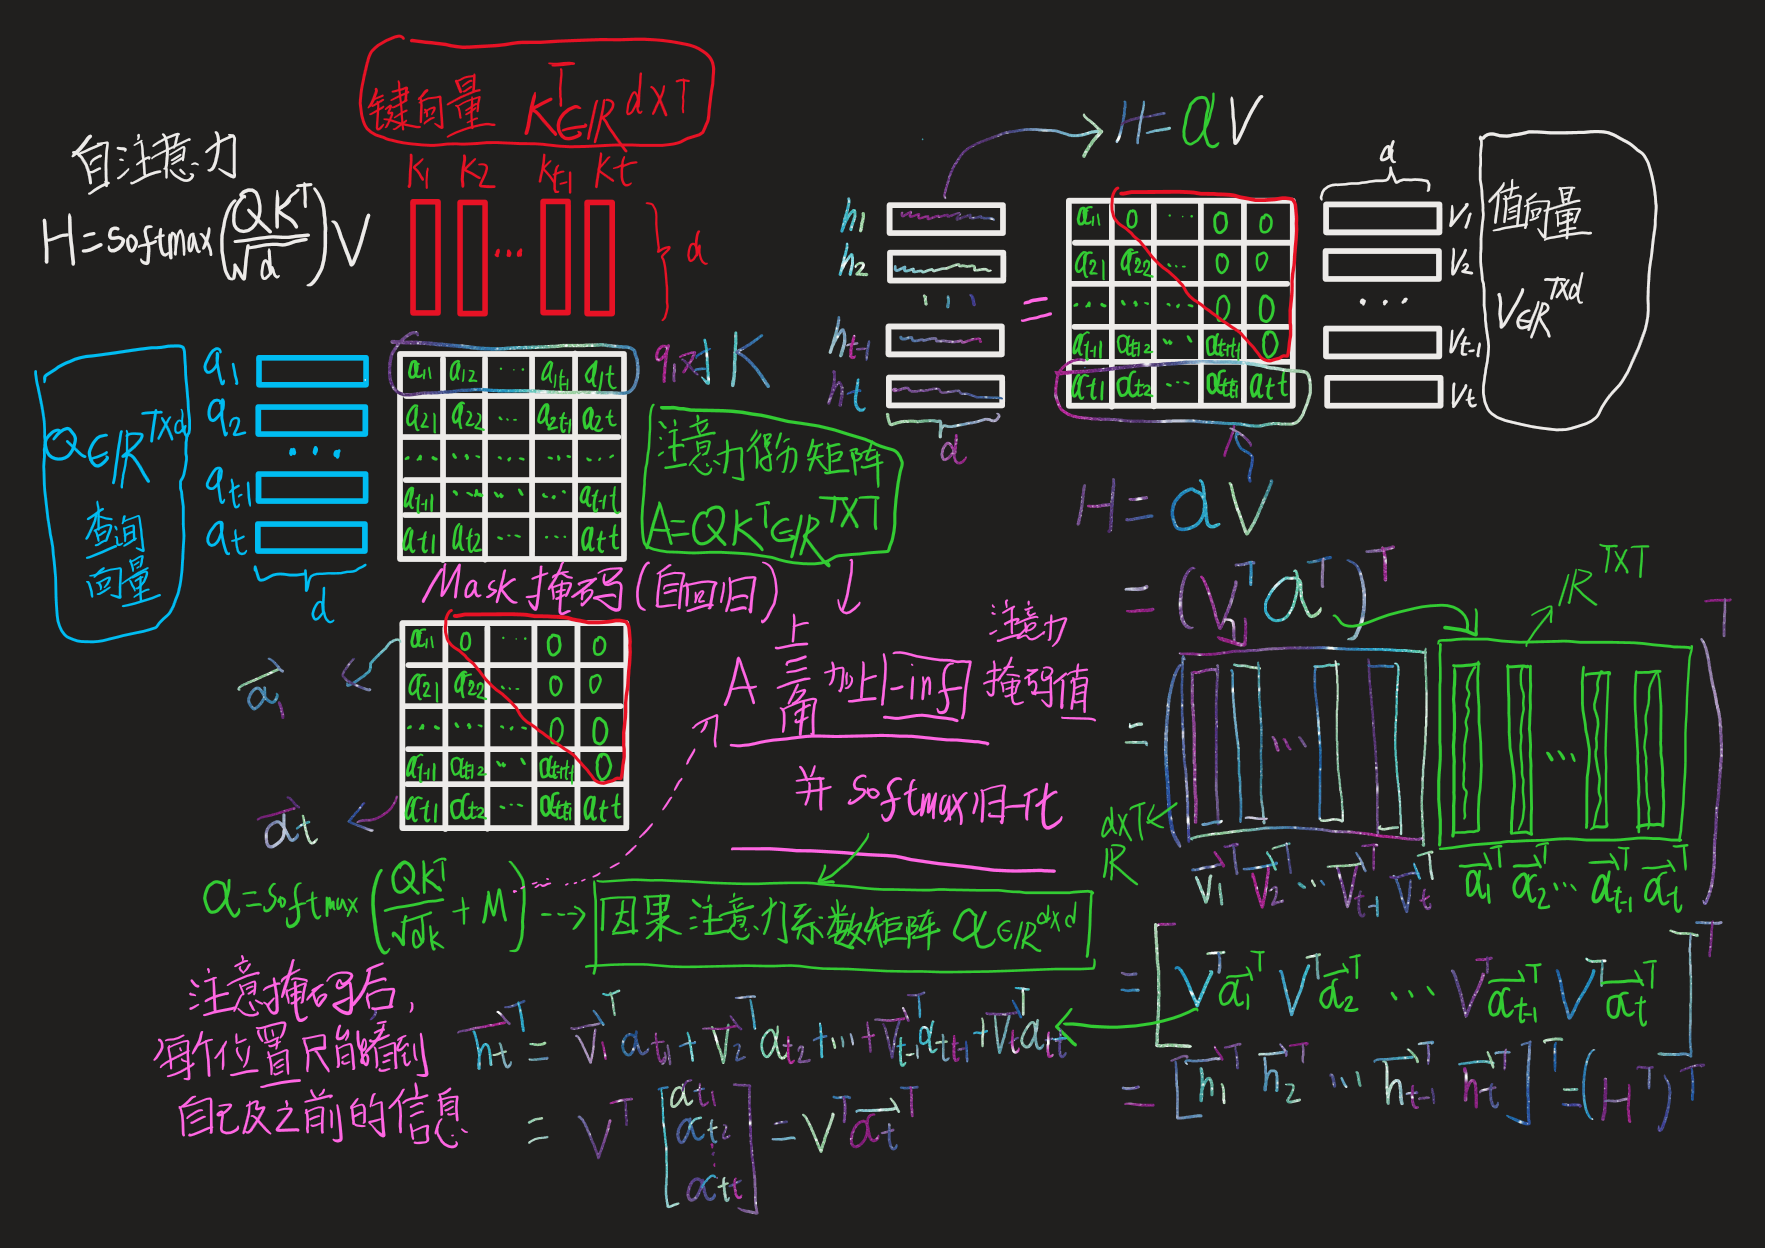 自注意力
H=softmax(QKᵀ/√d)V
键向量 Kᵀ∈ℝ d×T
K₁ K₂ Kt-1 Kt
...
d
Q∈ℝ T×d
查询
向量
q₁
q₂
...
qt-1
qt
d
a11 a12 ... a1t-1 a1t
a21 a22 ... a2t-1 a2t
... ... ... ... ...
at-11 ... ... ... at-1t
at1 at2 ... ... att
q₁对K
注意力得分矩阵
A=QKᵀ∈ℝ T×T
Mask 掩码(自回归)
α11 0 ... 0 0
α21 α22 ... 0 0
... ... ... 0 0
αt-11 αt-12 ... αt-1t-1 0
αt1 αt2 ... αtt-1 αtt
α₁
αt
A 上三角 加上 -inf 注意力掩码值
并 softmax归一化
α=softmax(QKᵀ/√dk + M)
因果注意力系数矩阵 α∈ℝ d×d
注意掩码后,
每个位置只能看到
自己及之前的信息
htᵀ = V₁ᵀαt1 + V₂ᵀαt2 + ... + Vt-1ᵀαtt-1 + Vtᵀαtt
= Vᵀ [αt1 αt2 ... αtt] = Vᵀαtᵀ
H=αV
h₁
h₂
...
ht-1
ht
d
=
α11 0 ... 0 0
α21 α22 ... 0 0
... ... ... 0 0
αt-11 αt-12 ... αt-1t-1 0
αt1 αt2 ... αtt-1 αtt
d
V₁
V₂
...
Vt-1
Vt
值向量
V∈ℝ T×d
H=αV
=(Vᵀαᵀ)ᵀ
ℝ T×T
= ( ... ... )ᵀ
d×T
ℝ
V₁ᵀ V₂ᵀ ... Vt-1ᵀ Vtᵀ α₁ᵀ α₂ᵀ ... αt-1ᵀ αtᵀ
= [Vᵀα₁ᵀ Vᵀα₂ᵀ ... Vᵀαt-1ᵀ Vᵀαtᵀ]ᵀ
= [h₁ᵀ h₂ᵀ ... ht-1ᵀ htᵀ]ᵀ = (Hᵀ)ᵀ